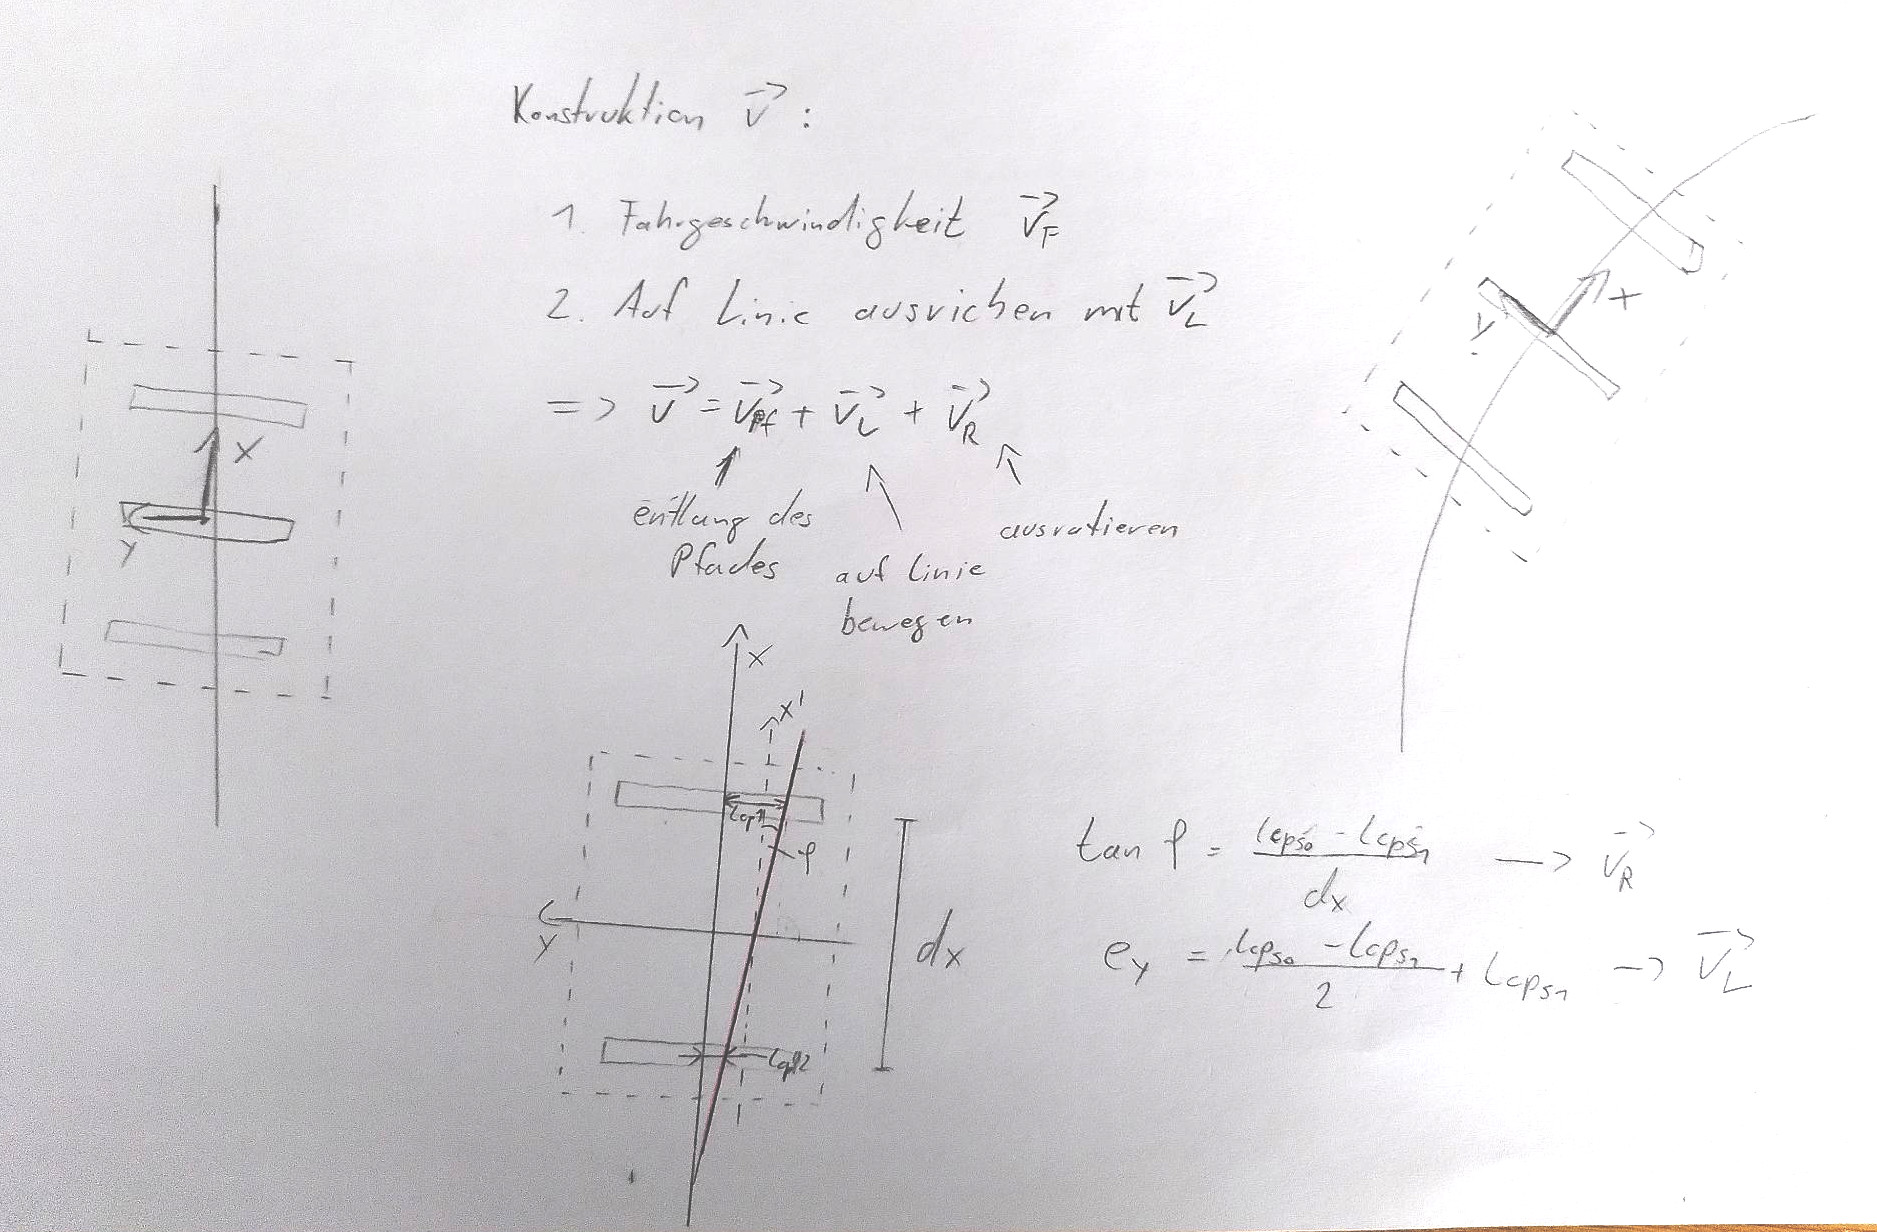 Konstruktion v⃗ :
1. Fahrgeschwindigkeit v⃗_F
2. Auf Linie ausrichen mit v⃗_L
=> v⃗ = v⃗_Pf + v⃗_L + v⃗_R
entlang des
Pfades
auf Linie
bewegen
ausrotieren
x
y
x
y
x
x'
lcp1
φ
y
dx
lcp2
tan φ = (lcps₀ - lcps₁) / dx → v⃗_R
e_y = (lcps₀ - lcps₁) / 2 + lcps₁ → v⃗_L